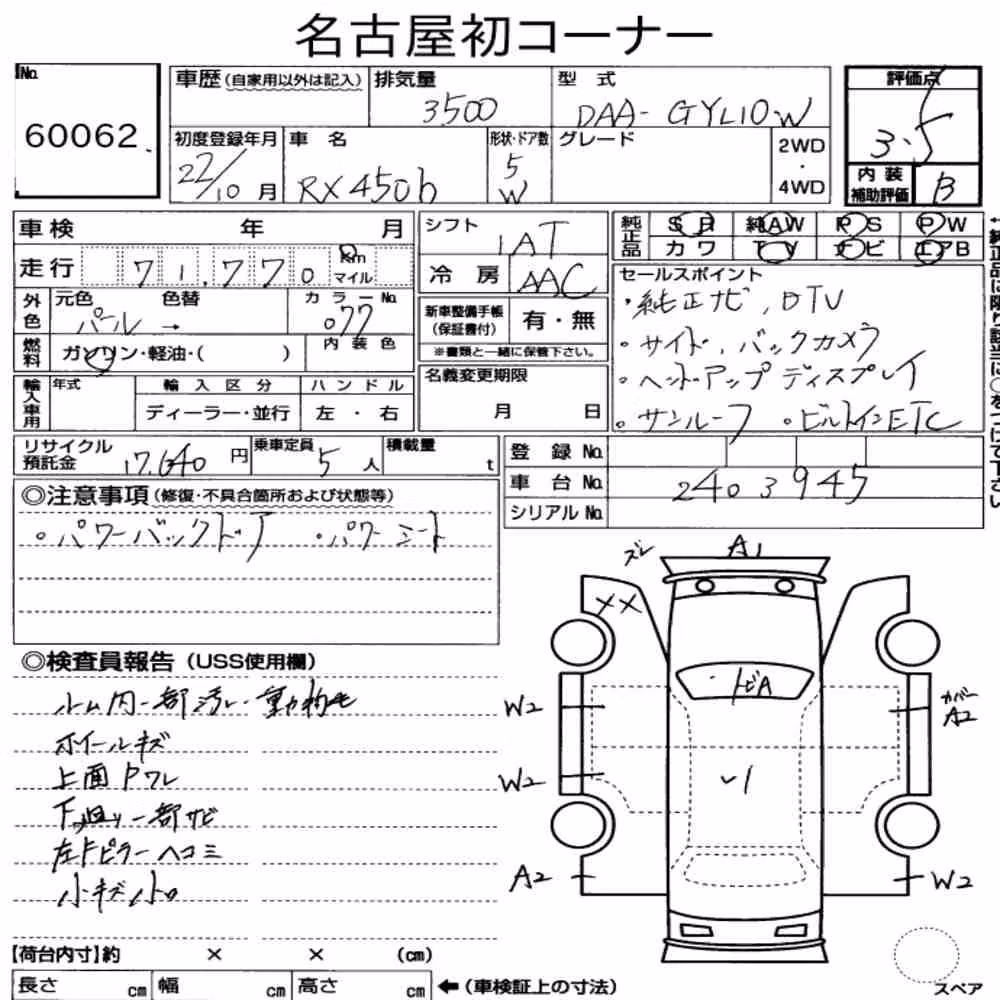 名古屋初コーナー
No.
60062
車歴(自家用以外は記入)
排気量
3500
型 式
DAA-GYL10W
評価点
3.5
初度登録年月
22/10月
車 名
RX450h
形状・ドア数
5
W
グレード
2WD
・
4WD
内 装
補助評価
B
車検 年 月
走行 71,770 Km マイル
シフト
IAT
冷 房 AAC
純正品
SR 純AW PS PW
カワ TV ナビ エアB
←純正品に限り該当に○をつけて下さい
セールスポイント
・純正ナビ、DTV
・サイド、バックカメラ
・ヘッドアップディスプレイ
・サンルーフ ・ビルトインETC
外色
元色 色替
パール →
カラーNo.
077
新車整備手帳
(保証書付)
有・無
※書類と一緒に保管下さい。
燃料
ガソリン・軽油・( )
内 装 色
輸入車用
年式
輸 入 区 分
ハ ン ド ル
ディーラー・並行
左 ・ 右
名義変更期限
月 日
リサイクル
預託金
17,640円
乗車定員
5人
積載量
t
登 録 No.
車 台 No. 2403945
シリアル No.
◎注意事項(修復・不具合箇所および状態等)
・パワーバックドア ・パワーシート
◎検査員報告(USS使用欄)
ルーム内一部汚れ・動物毛
ホイールキズ
上面Pワレ
下廻り一部サビ
左Fピラーヘコミ
小キズ小凹
ズレ
A1
XX
トビA
W2
カバー
A2
W2
A2
W2
スペア
【荷台内寸】約 × × (cm)
長さ cm 幅 cm 高さ cm ←(車検証上の寸法)